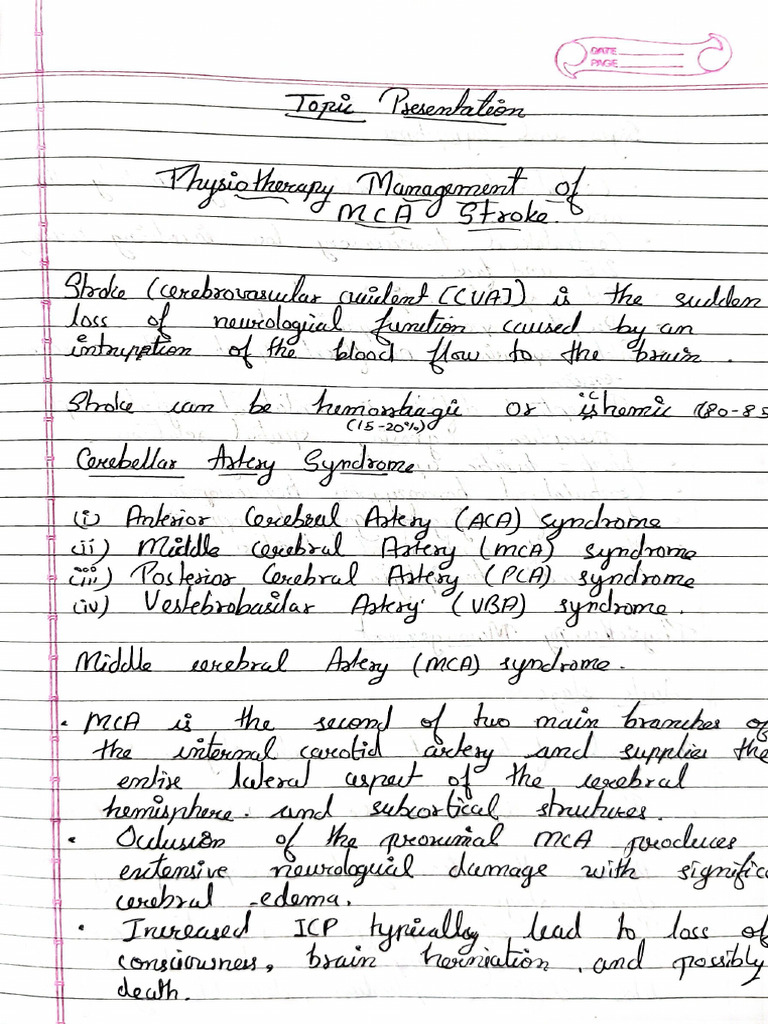 DATE
PAGE
Topic Presentation
Physiotherapy Management of
MCA Stroke.
Stroke (cerebrovascular accident [CVA]) is the sudden
loss of neurological function caused by an
intrupption of the blood flow to the brain.
Stroke can be hemorrhagic or ischemic (80-85
(15-20%)
Cerebellar Artery Syndrome
(i) Anterior Cerebral Artery (ACA) syndrome
(ii) Middle cerebral Artery (MCA) syndrome
(iii) Posterior Cerebral Artery (PCA) syndrome
(iv) Vertebrobasilar Artery (VBA) syndrome.
Middle cerebral Artery (MCA) syndrome.
• MCA is the second of two main branches of
the internal carotid artery and supplies the
entire lateral aspect of the cerebral
hemisphere. and subcortical structures.
• Occlusion of the proximal MCA produces
extensive neurological damage with signific
cerebral edema.
• Increased ICP typically lead to loss of
consciousness, brain herniation, and possibly
death.